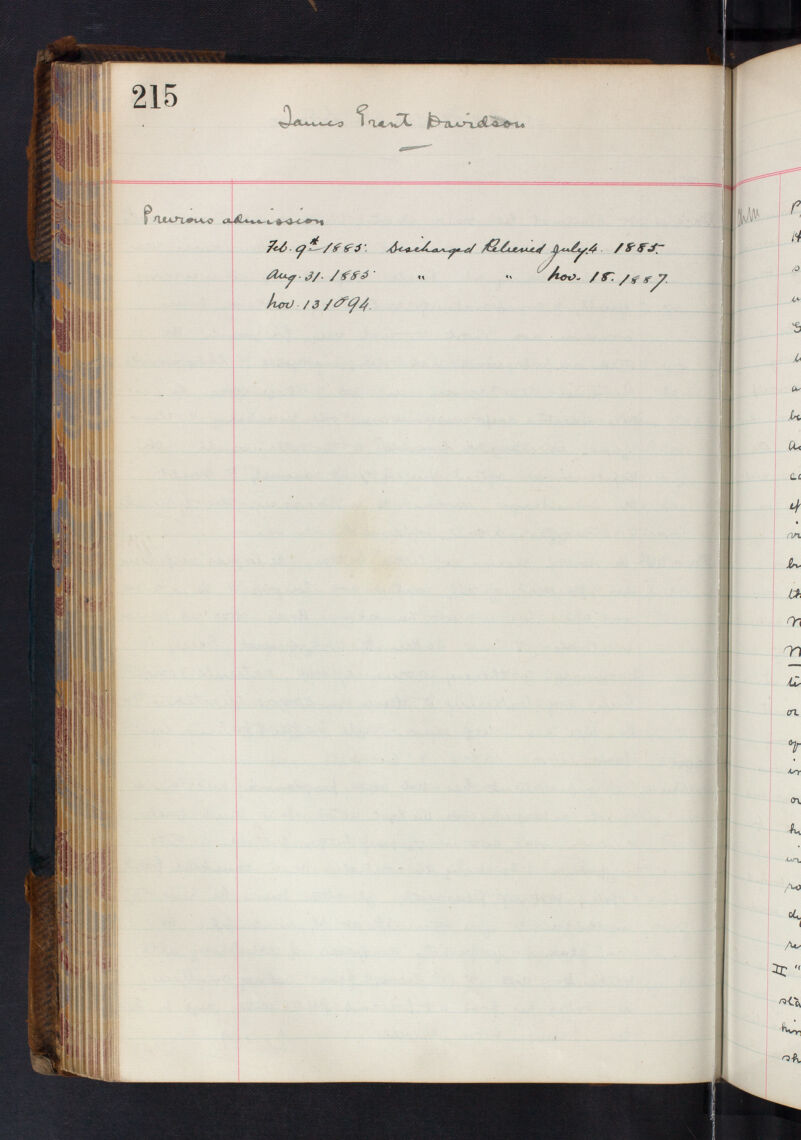 215
James Grant Davidson
Previous admission
Feb. 9th 1885. Discharged Relieved July 4. 1885.
Aug. 31. 1885 " " Nov. 18. 1887.
Nov. 13 1894.